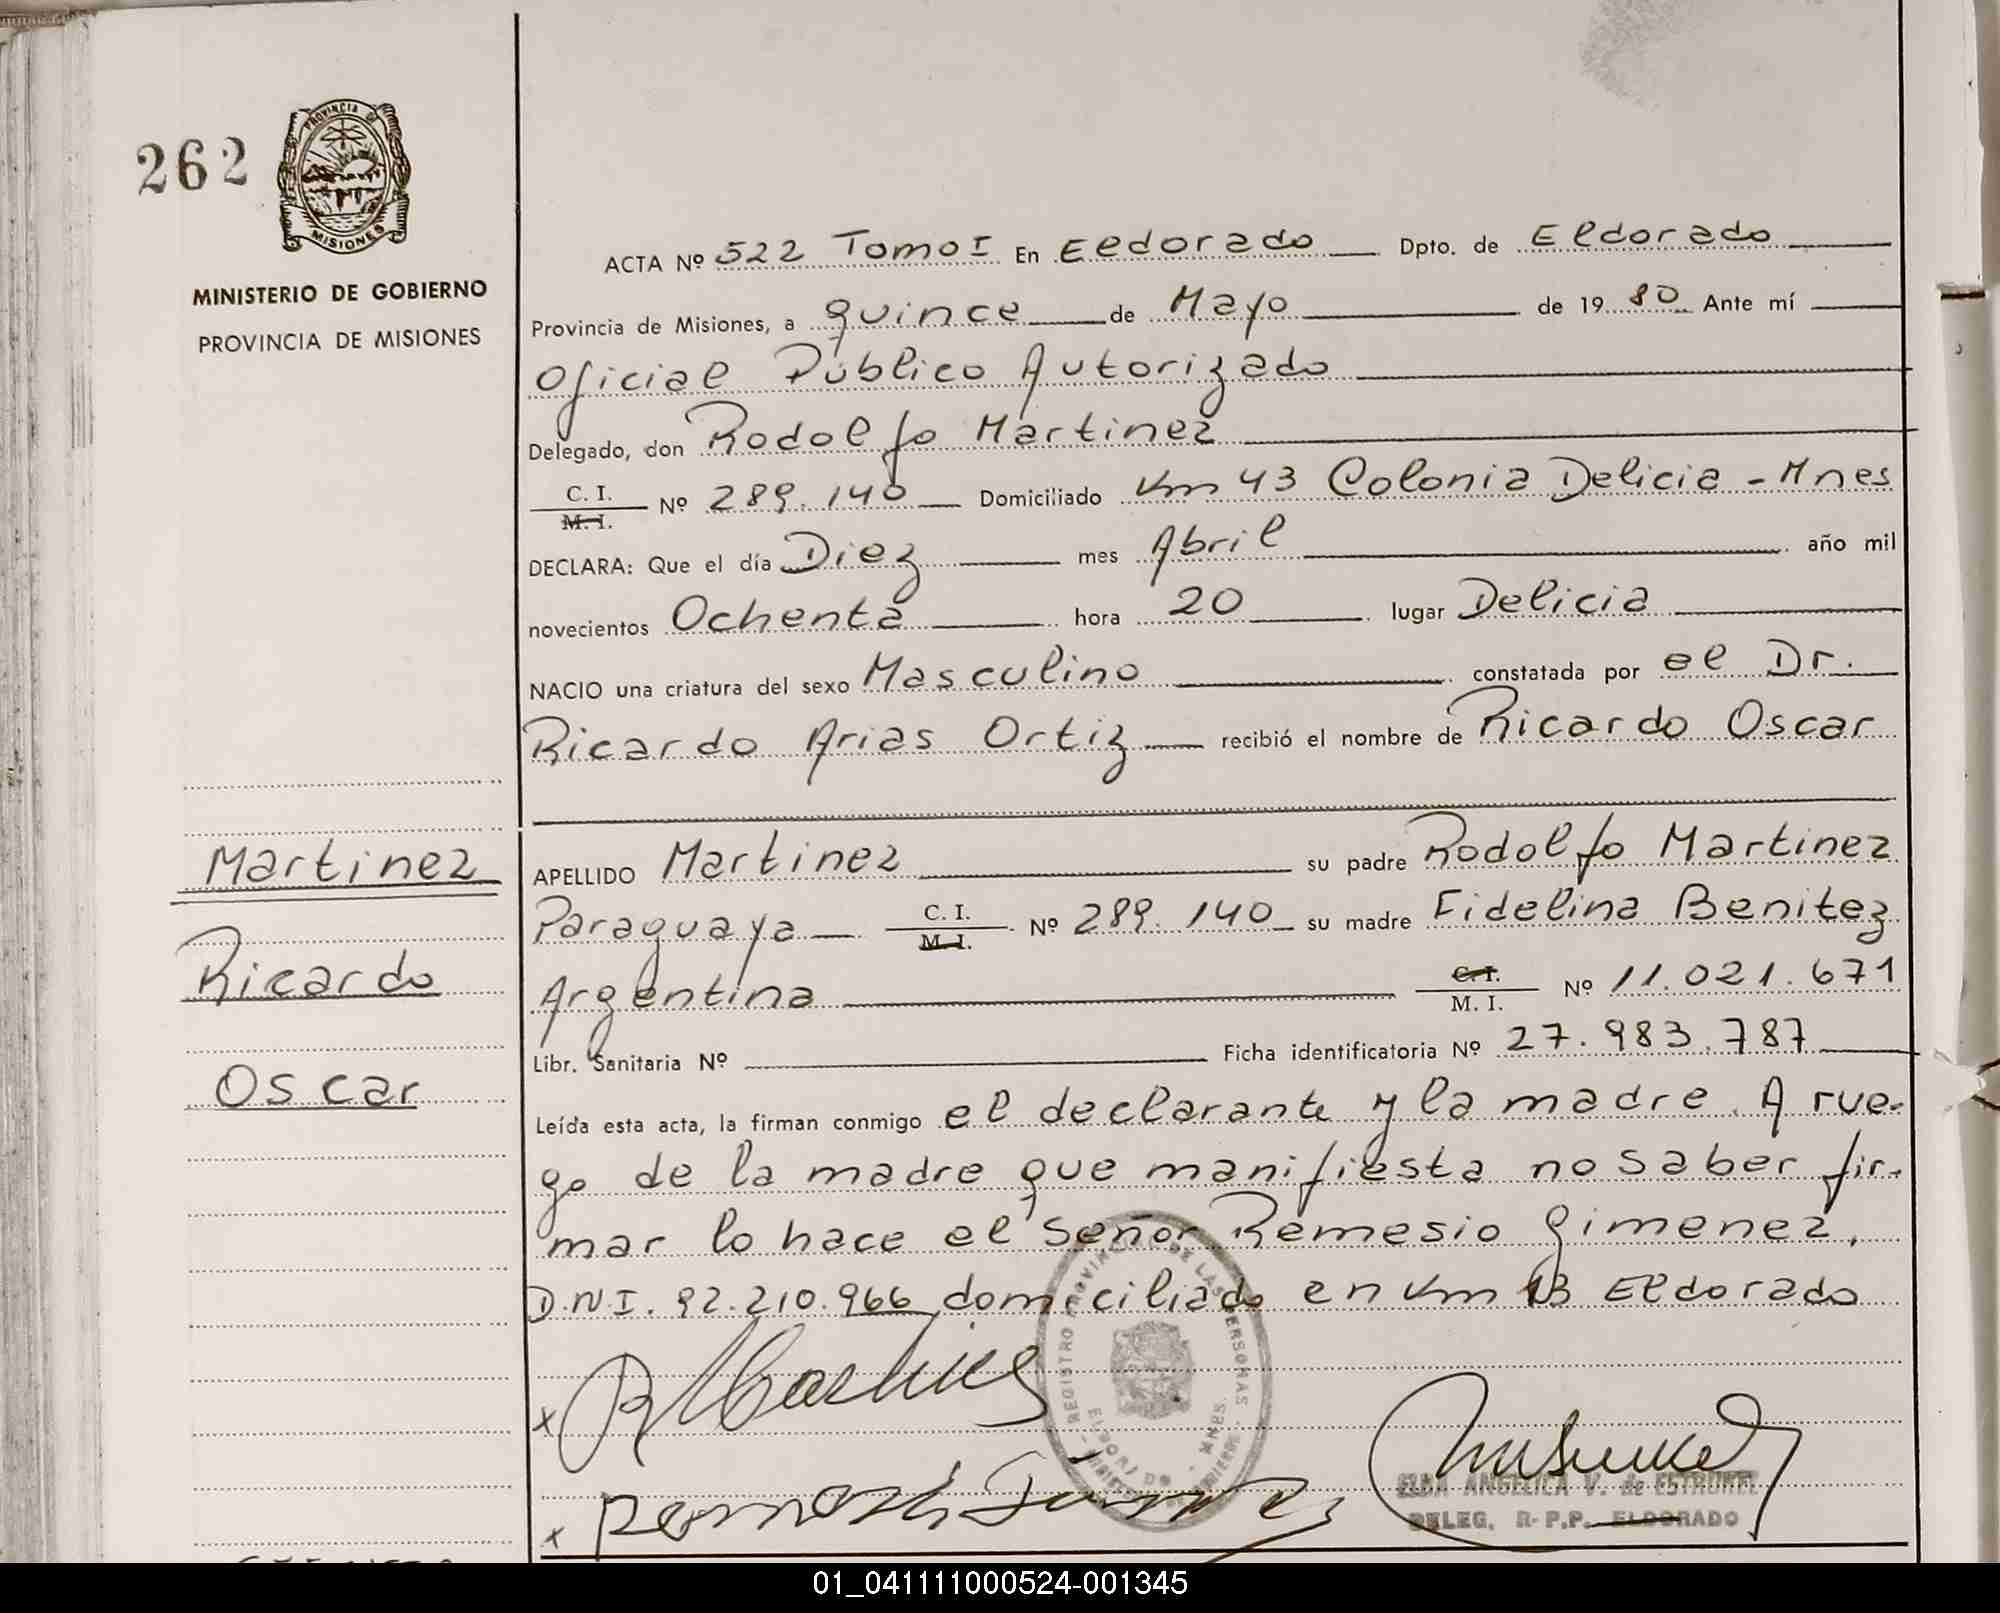 262
PROVINCIA DE
MISIONES
MINISTERIO DE GOBIERNO
PROVINCIA DE MISIONES
ACTA Nº 522 Tomo I En Eldorado Dpto. de Eldorado
Provincia de Misiones, a quince de Mayo de 1980 Ante mí
Oficial Público Autorizado
Delegado, don Rodolfo Martinez
C. I. M. I. Nº 289.140 Domiciliado Km 43 Colonia Delicia - Mnes
DECLARA: Que el día Diez mes Abril año mil
novecientos Ochenta hora 20 lugar Delicia
NACIO una criatura del sexo Masculino constatada por el Dr.
Ricardo Arias Ortiz recibió el nombre de Ricardo Oscar
Martinez
Ricardo
Oscar
APELLIDO Martinez su padre Rodolfo Martinez
Paraguaya C. I. M. I. Nº 289.140 su madre Fidelina Benitez
Argentina C. I. M. I. Nº 11.021.671
Libr. Sanitaria Nº Ficha identificatoria Nº 27.983.787
Leída esta acta, la firman conmigo el declarante y la madre. A rue-
go de la madre que manifiesta no saber fir-
mar lo hace el Señor Remesio Gimenez,
D.N.I. 92.210.966 domiciliado en Km 13 Eldorado
x R Martinez
REGISTRO PROVINCIAL DE LAS PERSONAS
ELDORADO - MNES.
x
ELBA ANGELICA V. de ESTRUKEL
DELEG. R.P.P. ELDORADO
01_041111000524-001345